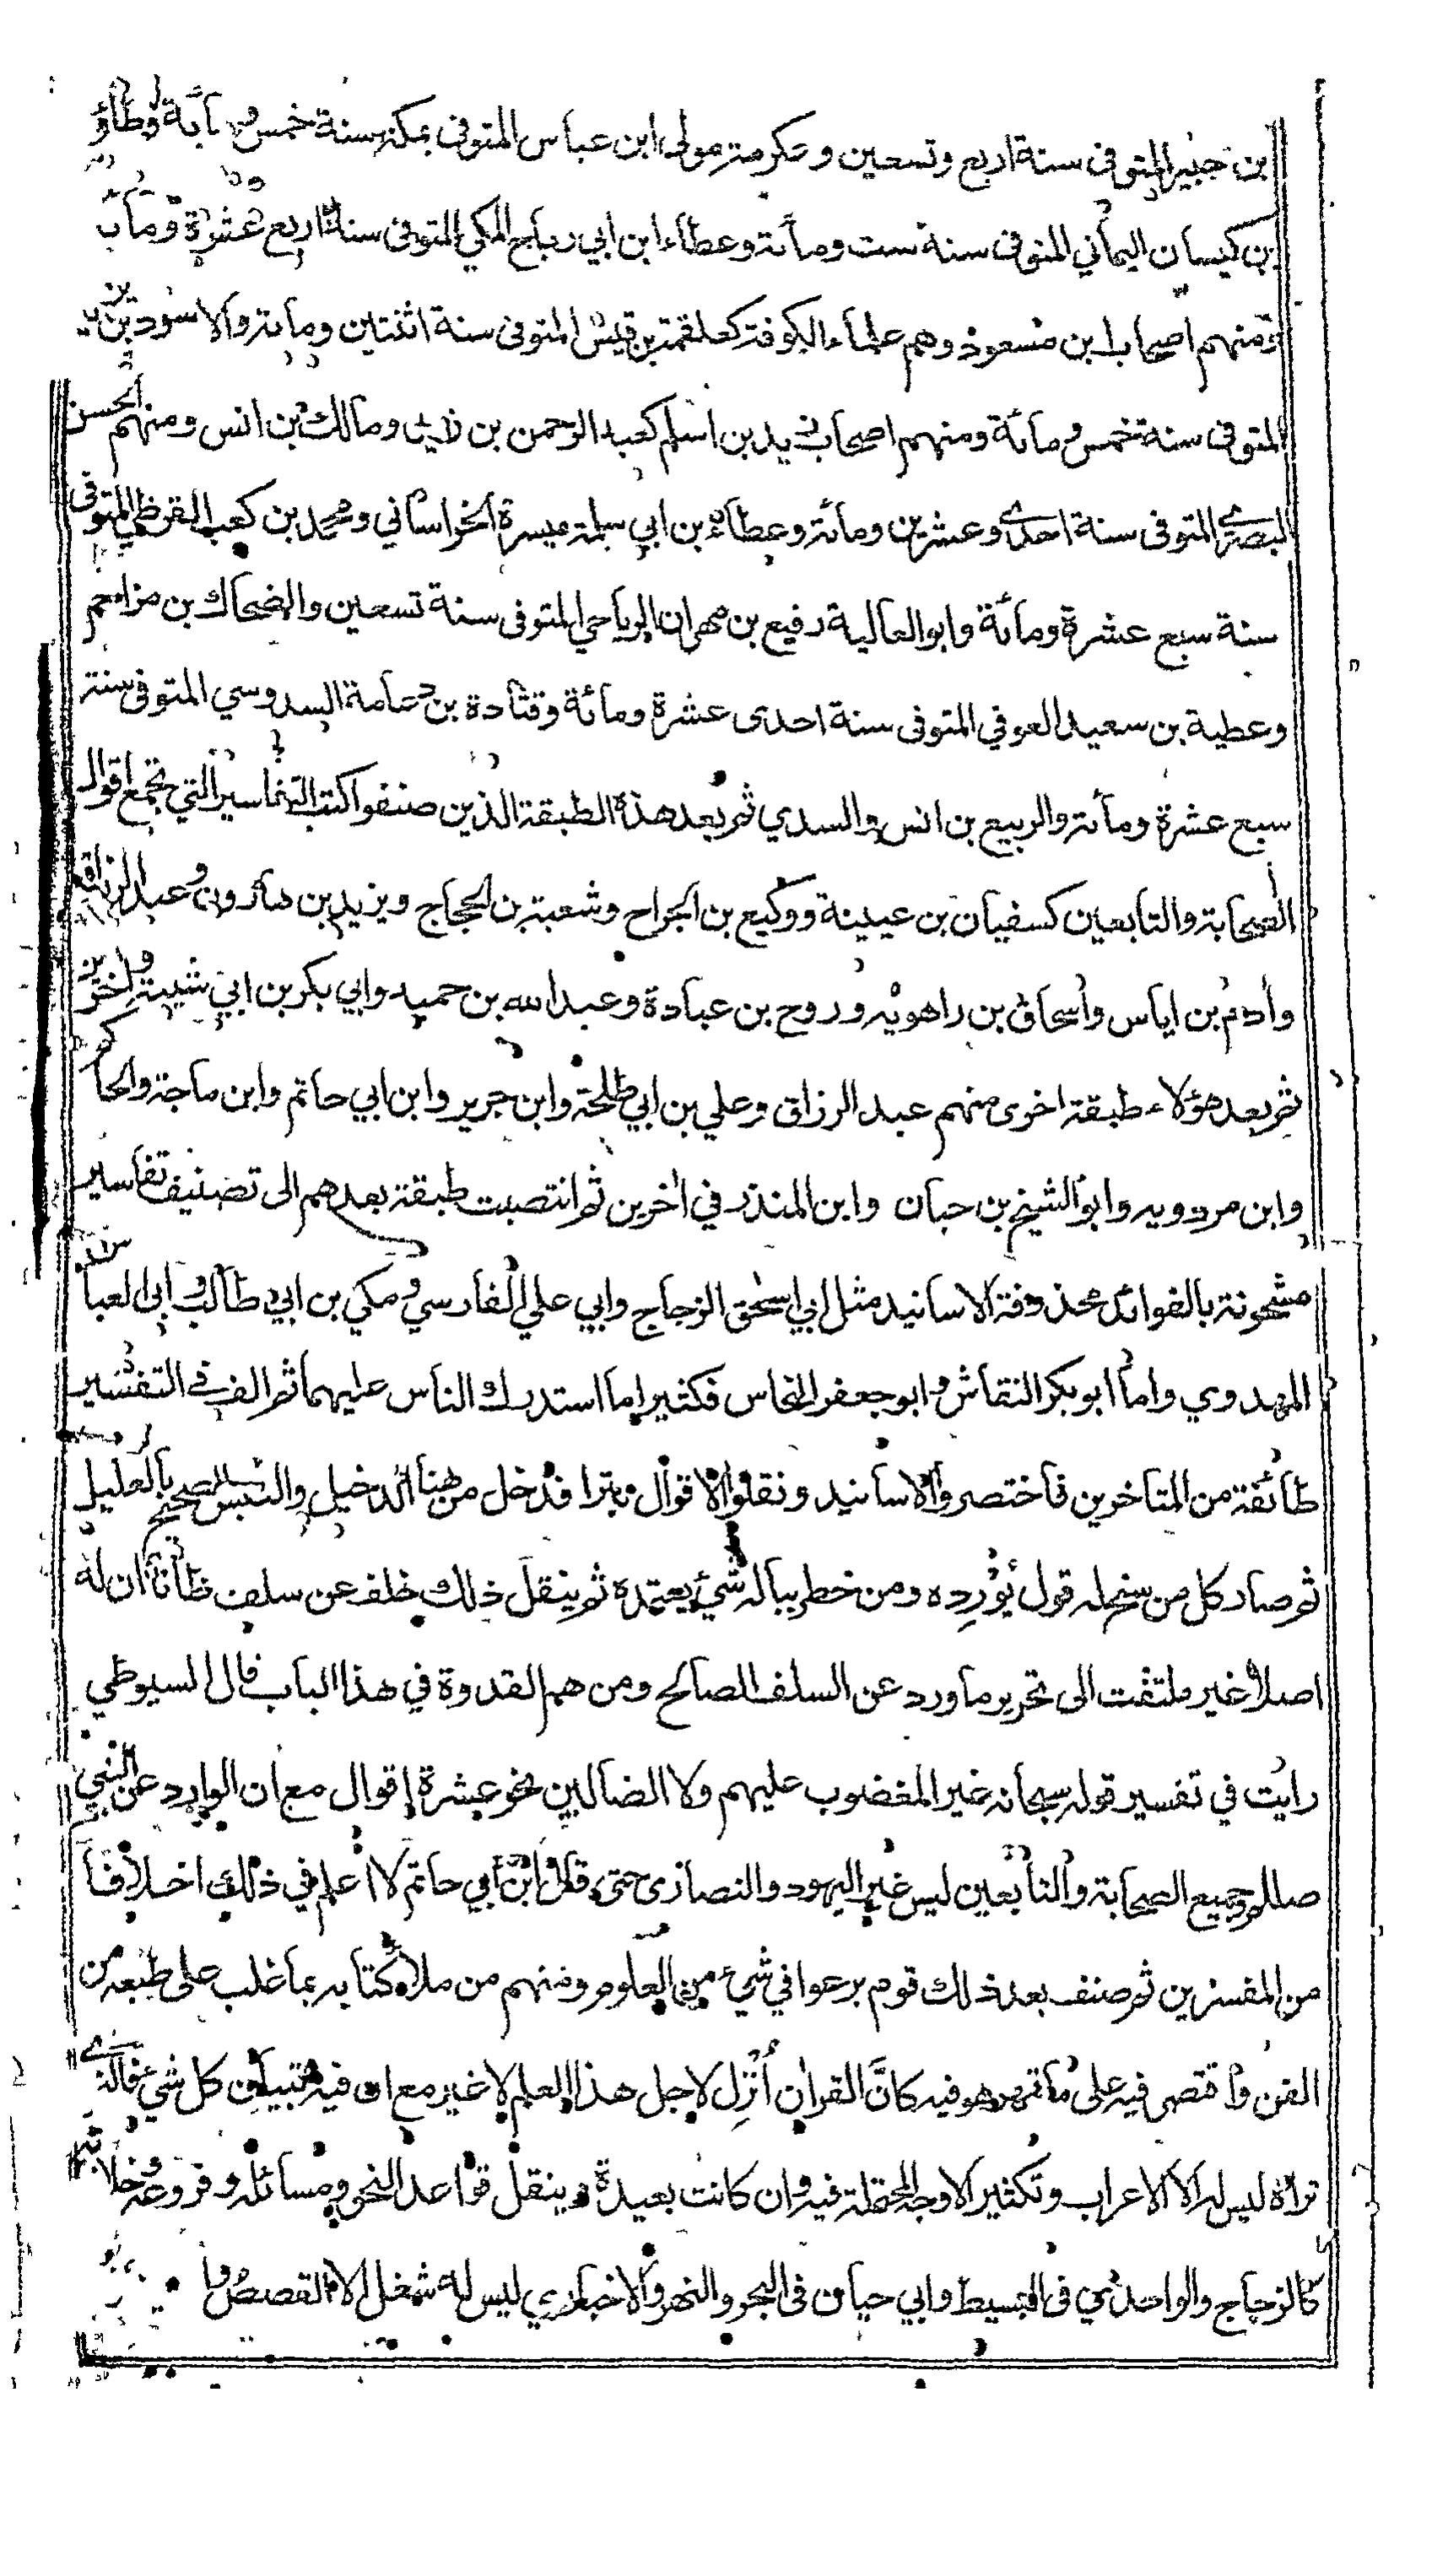 بن جبير المتوفى سنة اربع وتسعين وعكرمة مولى ابن عباس المتوفى بمكة سنة خمس ومأئة وطاؤ
بن كيسان اليماني المتوفى سنة ست ومأئة وعطاء ابن ابي رباح المكي المتوفى سنة اربع عشرة ومأئة
ومنهم اصحاب ابن مسعود وهم علماء الكوفة كعلقمة بن قيس المتوفى سنة اثنتين ومأئة والاسود بن يزيد
المتوفى سنة خمس ومأئة ومنهم اصحاب زيد بن اسلم كعبد الرحمن بن زيد ومالك بن انس ومنهم الحسن
البصري المتوفى سنة احدى وعشرين ومأئة وعطاء بن ابي سلمة ميسرة الخراساني ومحمد بن كعب القرظي المتوفى
سنة سبع عشرة ومأئة وابو العالية رفيع بن مهران الرياحي المتوفى سنة تسعين والضحاك بن مزاحم
وعطية بن سعيد العوفي المتوفى سنة احدى عشرة ومائة وقتادة بن دعامة السدوسي المتوفى سنة
سبع عشرة ومأئة والربيع بن انس والسدي ثم بعد هذه الطبقة الذين صنفوا كتب التفاسير التي تجمع اقوال
الصحابة والتابعين كسفيان بن عيينة ووكيع بن الجراح وشعبة بن الحجاج ويزيد بن هارون وعبد الرزاق
وأدم بن اياس واسحاق بن راهويه وروح بن عبادة وعبد الله بن حميد وابي بكر بن ابي شيبة واخرين
ثم بعد هؤلاء طبقة اخرى منهم عبد الرزاق وعلي بن ابي طلحة وابن جرير وابن ابي حاتم وابن ماجة والحاكم
وابن مردويه وابو الشيخ بن حبان وابن المنذر في اخرين ثم انتصبت طبقة بعدهم الى تصنيف تفاسير
مشحونة بالفوائد محذوفة الاسانيد مثل ابي اسحق الزجاج وابي علي الفارسي ومكي بن ابي طالب وابى العباس
المهدوي واما ابو بكر النقاش وابو جعفر النحاس فكثير اما استدرك الناس عليهما ثم الف في التفسير
طائفة من المتاخرين فاختصروا الاسانيد ونقلوا الاقوال بترا فدخل من هنا الدخيل والتبس الصحيح بالعليل
ثم صار كل من سنح له قول يورده ومن خطر بباله شيء يعتمده ثم ينقل ذلك خلف عن سلف ظانا ان له
اصلا غير ملتفت الى تحرير ما ورد عن السلف الصالح ومن هم القدوة في هذا الباب قال السيوطي
رايت في تفسير قوله سبحانه غير المغضوب عليهم ولا الضالين نحو عشرة اقوال مع ان الوارد عن النبي
صللم وجميع الصحابة والتابعين ليس غير اليهود والنصارى حتى قال ابن أبي حاتم لا اعلم في ذلك اختلافا
من المفسرين ثم صنف بعد ذلك قوم برعوا في شيء من العلوم ومنهم من ملأ كتابه بما غلب على طبعه من
الفن واقتصر فيه على ما تمهر هو فيه كانَّ القران أُنزِل لاجل هذا العلم لا غير مع ان فيه تبيان كل شيء فالنحوي
تراه ليس له الا الاعراب وتكثير الاوجه المحتملة فيه وان كانت بعيدة وينقل قواعد النحو ومسائله وفروعه وخلافياته
كالزجاج والواحدي فى البسيط وابي حيان فى البحر والنهر والاخباري ليس له شغل الا القصص وا